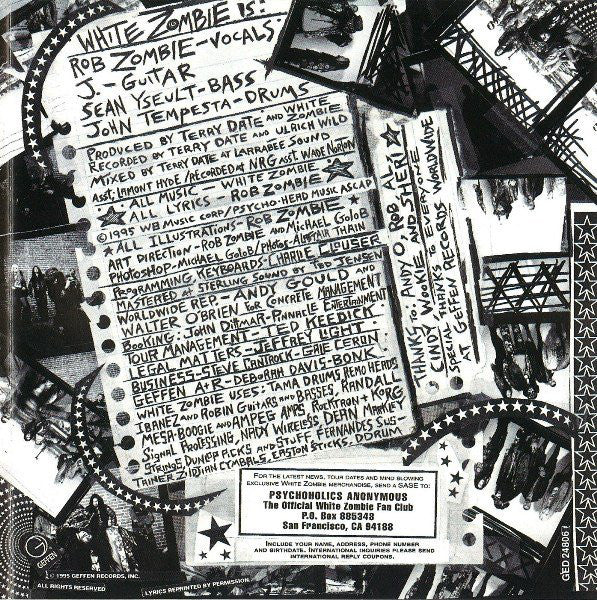 WHITE ZOMBIE IS:
ROB ZOMBIE-VOCALS
J.-GUITAR
SEAN YSEULT-BASS
JOHN TEMPESTA-DRUMS
PRODUCED BY TERRY DATE AND WHITE ZOMBIE
RECORDED BY TERRY DATE AND ULRICH WILD
MIXED BY TERRY DATE AT LARRABEE SOUND
ASST: LAMONT HYDE/RECORDED AT NRG ASST. WADE NORTON
ALL MUSIC - WHITE ZOMBIE
ALL LYRICS - ROB ZOMBIE
©1995 WB MUSIC CORP/PSYCHO-HEAD MUSIC ASCAP
ALL ILLUSTRATIONS-ROB ZOMBIE
ART DIRECTION-ROB ZOMBIE AND MICHAEL GOLOB
PHOTOSHOP-MICHAEL GOLOB/PHOTOS-ALISTAIR THAIN
PROGRAMMING KEYBOARDS-CHARLIE CLOUSER
MASTERED AT STERLING SOUND BY TED JENSEN
WORLDWIDE REP-ANDY GOULD AND
WALTER O'BRIEN FOR CONCRETE MANAGEMENT
BOOKING: JOHN DITTMAR-PINNACLE ENTERTAINMENT
TOUR MANAGEMENT-TED KEEDICK
LEGAL MATTERS-JEFFREY LIGHT
BUSINESS-STEVE CANTROCK-GAIE CERUN
GEFFEN A+R-DEBORAH DAVIS-BONK
WHITE ZOMBIE USES: TAMA DRUMS REMO HEADS
IBANEZ AND ROBIN GUITARS AND BASSES, RANDALL
MESA-BOOGIE AND AMPEG AMPS, ROCKTRON + KORG
SIGNAL PROCESSING, NADY WIRELESS DEAN MARKLEY
STRINGS, DUNLOP PICKS AND STUFF, FERNANDES SUS
TAINER ZILDJIAN CYMBALS, EASTON STICKS, DDRUM
THANKS TO: ANDY O, ROB, AL,
CINDY WOOKIE AND SHERI
SPECIAL THANKS TO EVERYONE
AT GEFFEN RECORDS WORLDWIDE
FOR THE LATEST NEWS, TOUR DATES AND MIND BLOWING
EXCLUSIVE WHITE ZOMBIE MERCHANDISE, SEND A SASE TO:
PSYCHOHOLICS ANONYMOUS
The Official White Zombie Fan Club
P.O. Box 885343
San Francisco, CA 94188
INCLUDE YOUR NAME, ADDRESS, PHONE NUMBER
AND BIRTHDATE. INTERNATIONAL INQUIRIES PLEASE SEND
INTERNATIONAL REPLY COUPONS.
GEFFEN
© 1995 GEFFEN RECORDS, INC.
ALL RIGHTS RESERVED
LYRICS REPRINTED BY PERMISSION.
GED 24806